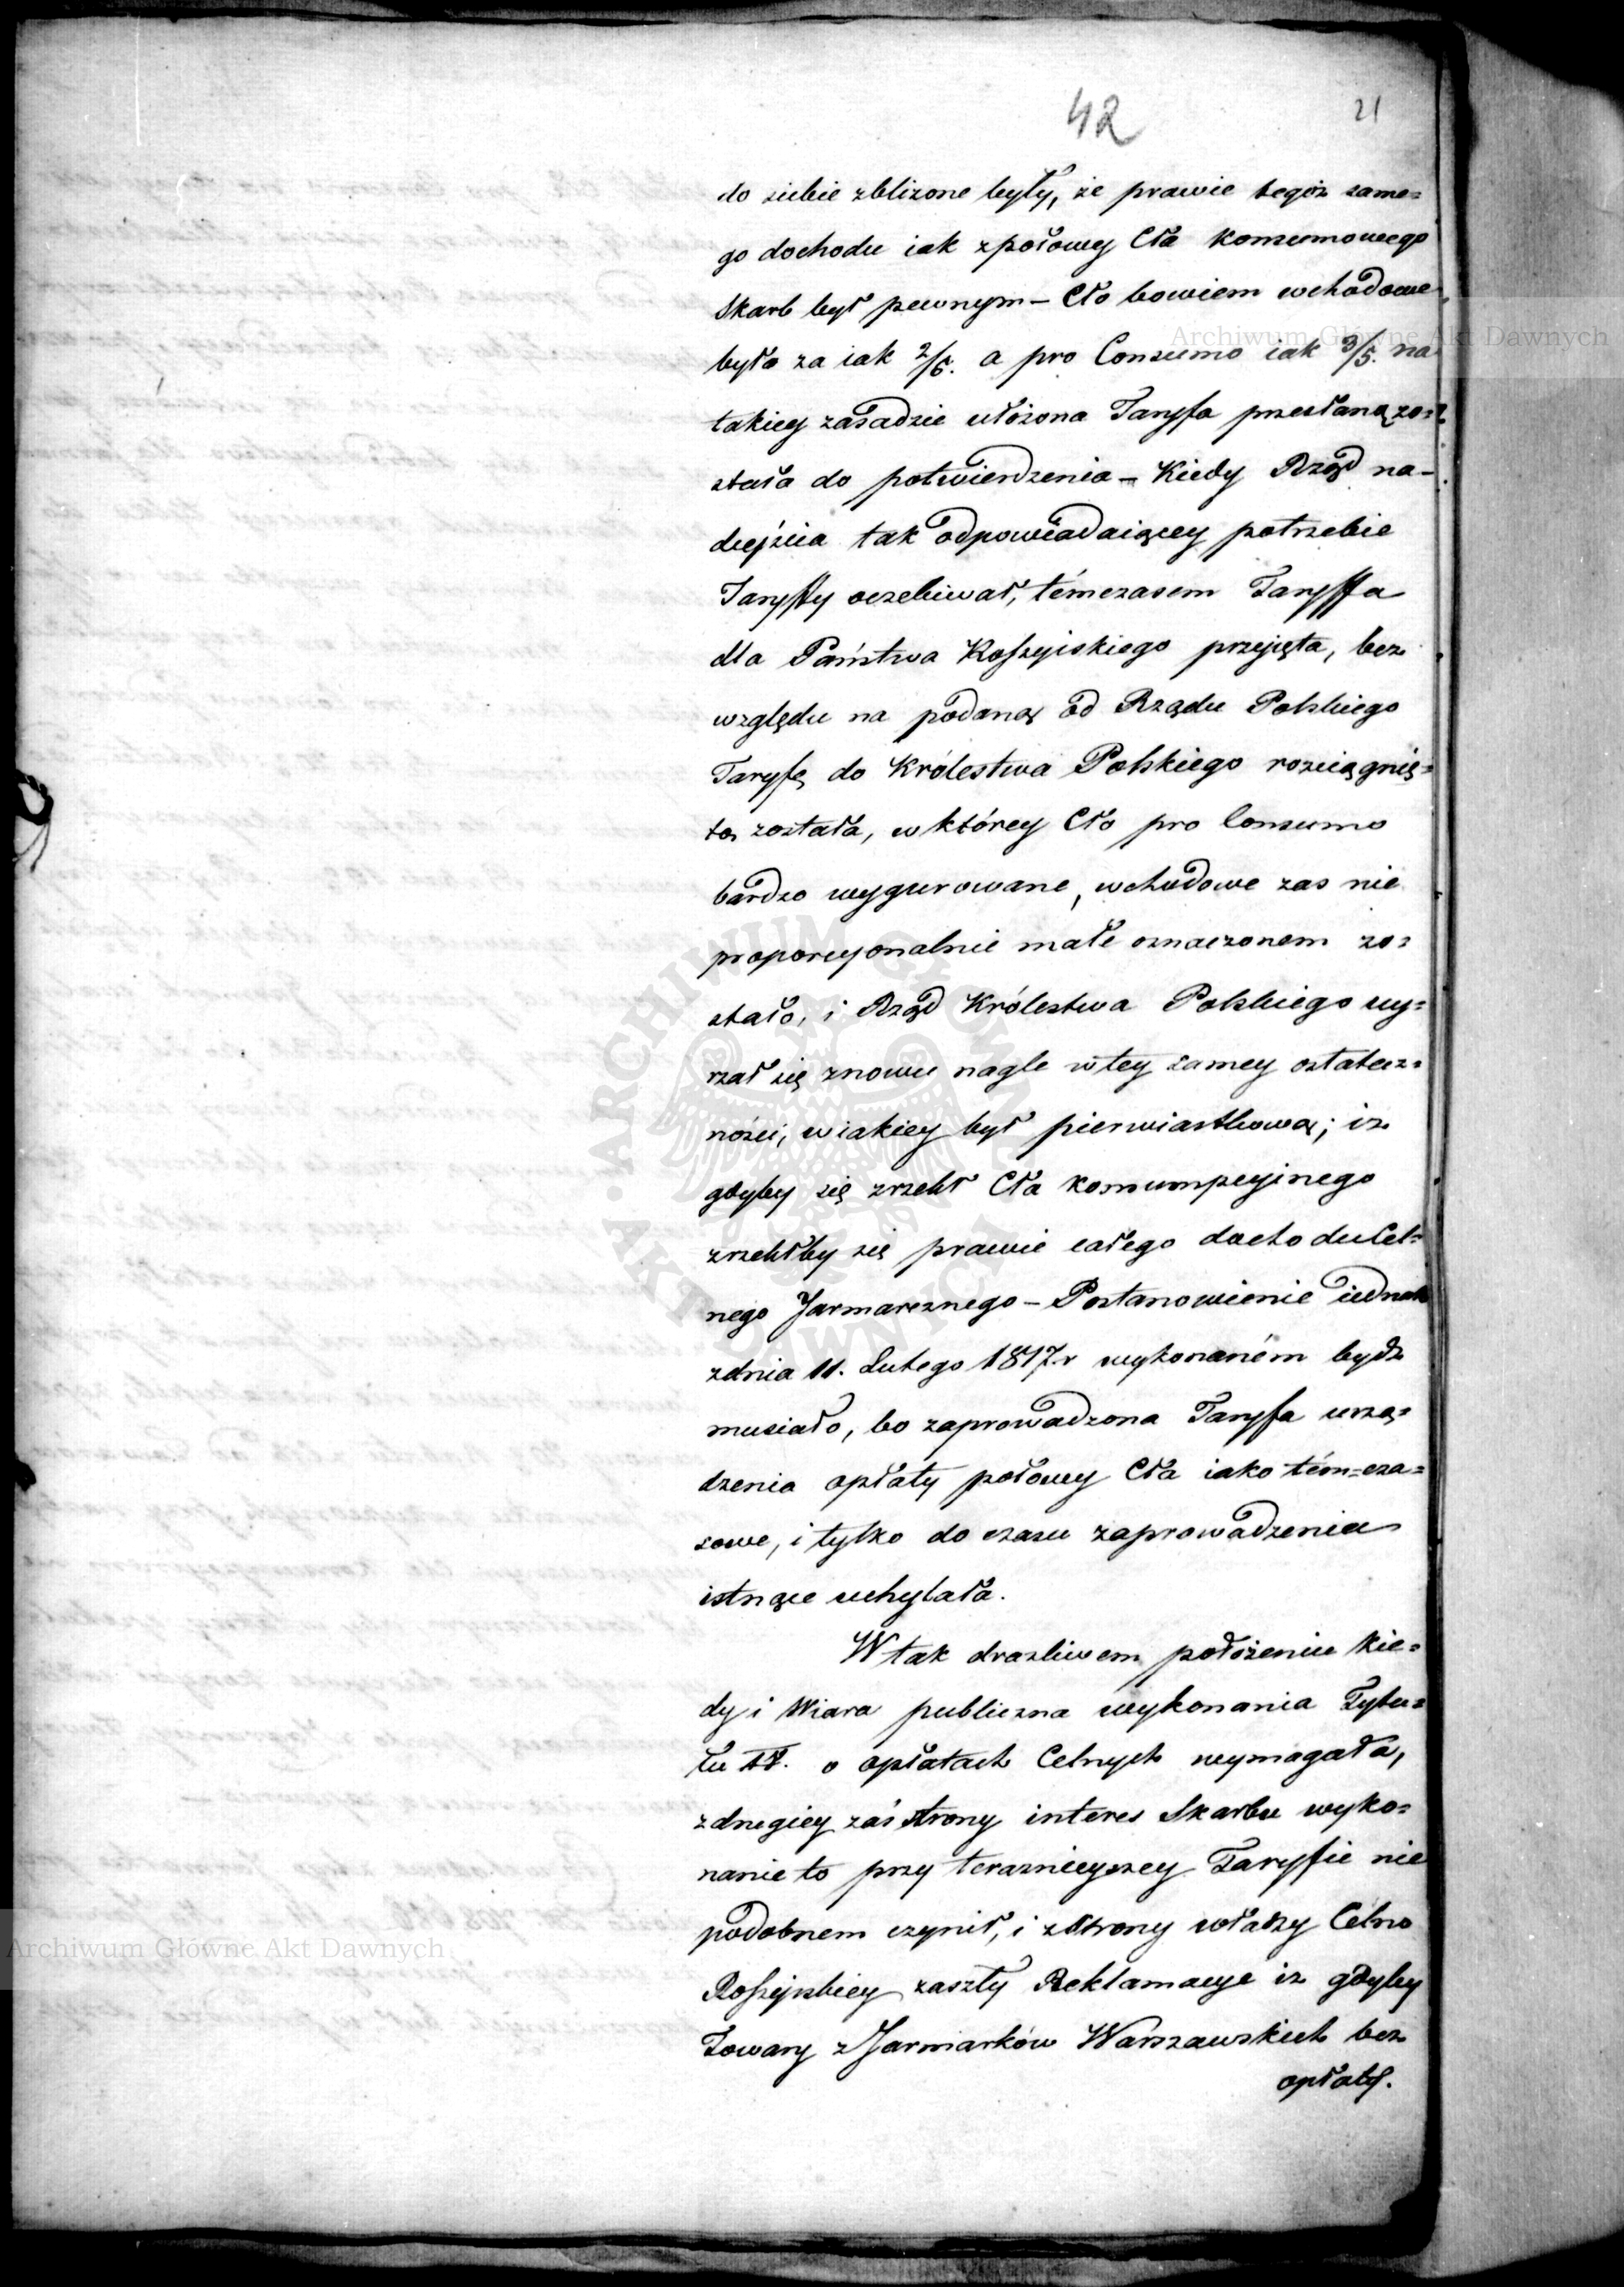 42 21
do siebie zbliżone były, że prawie tegóż same=
go dochodu iak zpołowy Cła konsumowego
Skarb był pewnym – Cło bowiem wchodowe
było za iak 2/6. a pro Consumo iak 3/5. na
takiey zasadzie ułożona Taryfa przesłaną zo=
stała do potwierdzenia – Kiedy Rząd na-
dejścia tak odpowiadaiącey potrzebie
Taryffy oczekiwał, témczasem Taryffa
dla Państwa Roſsyiskiego przyjęta, bez
względu na podaną od Rządu Polskiego
Taryfę do Królestwa Polskiego rozciągnię=
ta została, w którey Cło pro Consumo
bardzo wygurowane, wchodowe zas nie
proporcyonalnie małe oznaczonem zo=
stało, i Rząd Królestwa Polskiego uy=
rzał się znowu nagle w tey samey ostatecz=
ności, w iakiey był pierwiastkową; iz
gdyby się zrzekł Cła konsumpcyinego
zrzekłby się prawie całego dochodu Cel=
nego Jarmarcznego – Postanowienie iednak
zdnia 11. Lutego 1817.r wykonaném bydź
musiało, bo zaprowadzona Taryfa urzą=
dzenia opłaty połowy Cła iako tém=cza=
sowe, i tylko do czasu zaprowadzenia
istnące uchylała.
W tak drazliwem położeniu kie=
dy i Wiara publiczna wykonania Tytu=
łu o opłatach Celnych wymagała,
zdrugiey zaś strony interes Skarbu wyko=
nanie to przy terazniejszey Taryffie nie
podobnem czynił, i z strony władzy Celno
Roſsyiskiey zaszły Reklamacye iz gdyby
Towary z Jarmarków Warszawskich bez
opłaty.
Archiwum Główne Akt Dawnych
Archiwum Główne Akt Dawnych
ARCHIWUM GŁÓWNE AKT DAWNYCH